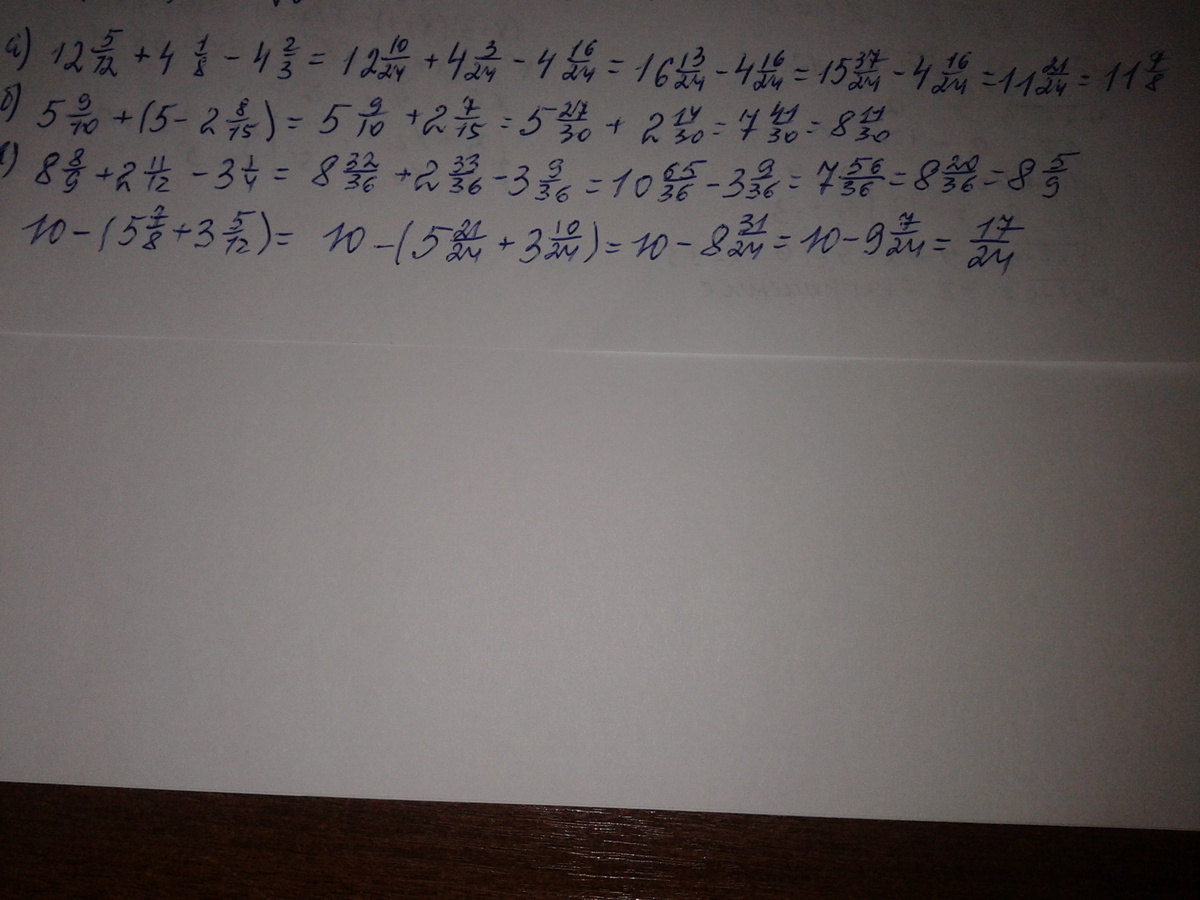 а) 12 5/12 + 4 1/8 - 4 2/3 = 12 10/24 + 4 3/24 - 4 16/24 = 16 13/24 - 4 16/24 = 15 37/24 - 4 16/24 = 11 21/24 = 11 7/8
б) 5 9/10 + (5 - 2 8/15) = 5 9/10 + 2 7/15 = 5 27/30 + 2 14/30 = 7 41/30 = 8 11/30
8 8/9 + 2 11/12 - 3 1/4 = 8 32/36 + 2 33/36 - 3 9/36 = 10 65/36 - 3 9/36 = 7 56/36 = 8 20/36 = 8 5/9
10 - (5 7/8 + 3 5/12) = 10 - (5 21/24 + 3 10/24) = 10 - 8 31/24 = 10 - 9 7/24 = 17/24